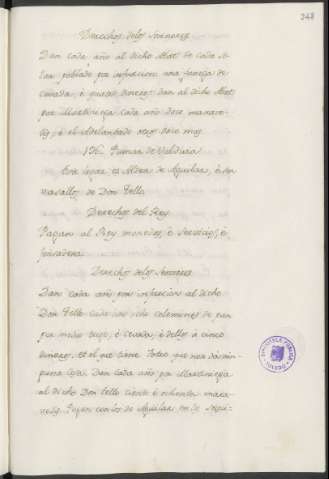 248
Derechos delos Señores
Dan cada año al dicho Abat de cada So-
lar poblado por infurcion una fanega de
cevada, e quatro dineros: dan al dicho Abat
por Martiniega cada año doce marave-
dis, e al Adelantado otros doce mrs.
Pumar de Valduira
Este logar es Aldea de Aguilar, e son
vasallos de Don Tello.
Derechos del Rey
Pagan al Rey monedas, e servicios, e
fonsadera.
Derechos delos Señores
Dan cada año por infurcion al dicho
Don Tello cada uno ocho celemines de pan
por medio trigo, e cevada, e dellos a cinco
dineros, et el que tiene Foteo que non da nin-
guna cosa. Dan cada año por Martiniega
al dicho Don Tello ciento e ochenta mara-
vedis. Pagan con los de Aguilar en de
BIBLIOTECA PUBLICA
TOLEDO